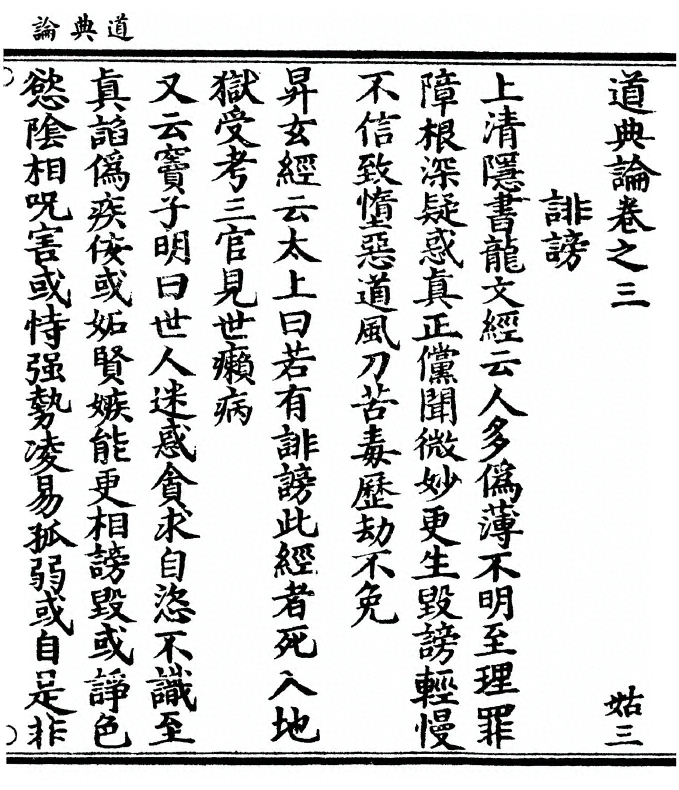 道典論
道典論卷之三
姑三
誹謗
上清隱書龍文經云人多僞薄不明至理罪
障根深疑惑真正儻聞微妙更生毀謗輕慢
不信致墮惡道風刀苦毒歷劫不免
昇玄經云太上曰若有誹謗此經者死入地
獄受考三官見世癩病
又云竇子明曰世人迷惑貪求自恣不識至
真諂僞疾佞或妬賢嫉能更相謗毀或諍色
慾陰相呪害或恃强勢凌易孤弱或自是非